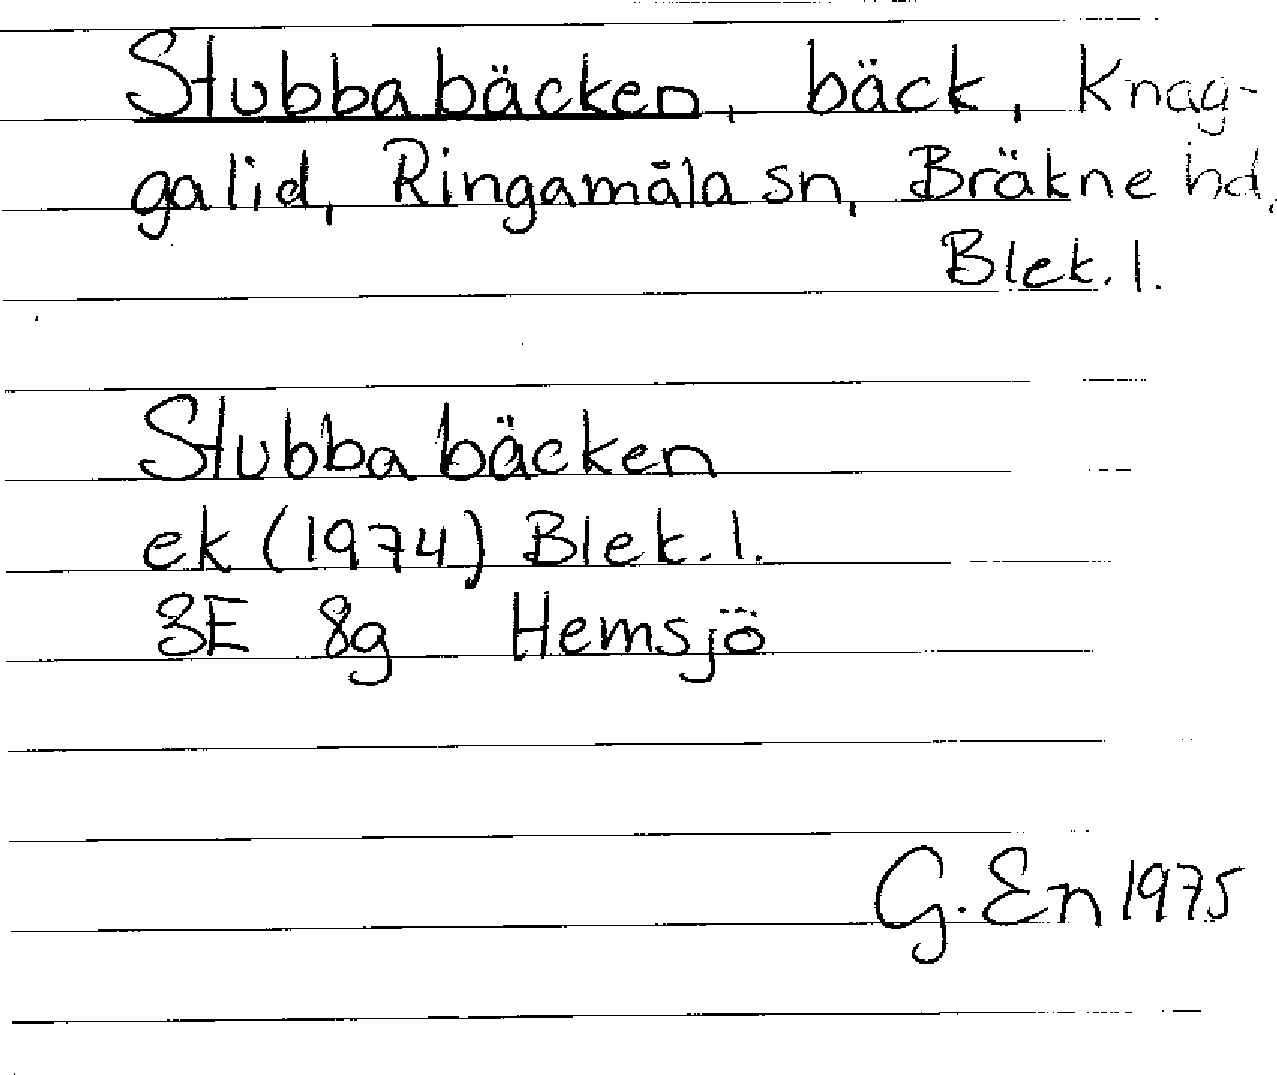 Stubbabäcken, bäck, Knag-
galid, Ringamåla sn, Bräkne hd,
Blek. l.
Stubbabäcken
ek (1974) Blek. l.
3E 8g Hemsjö
G. En 1975